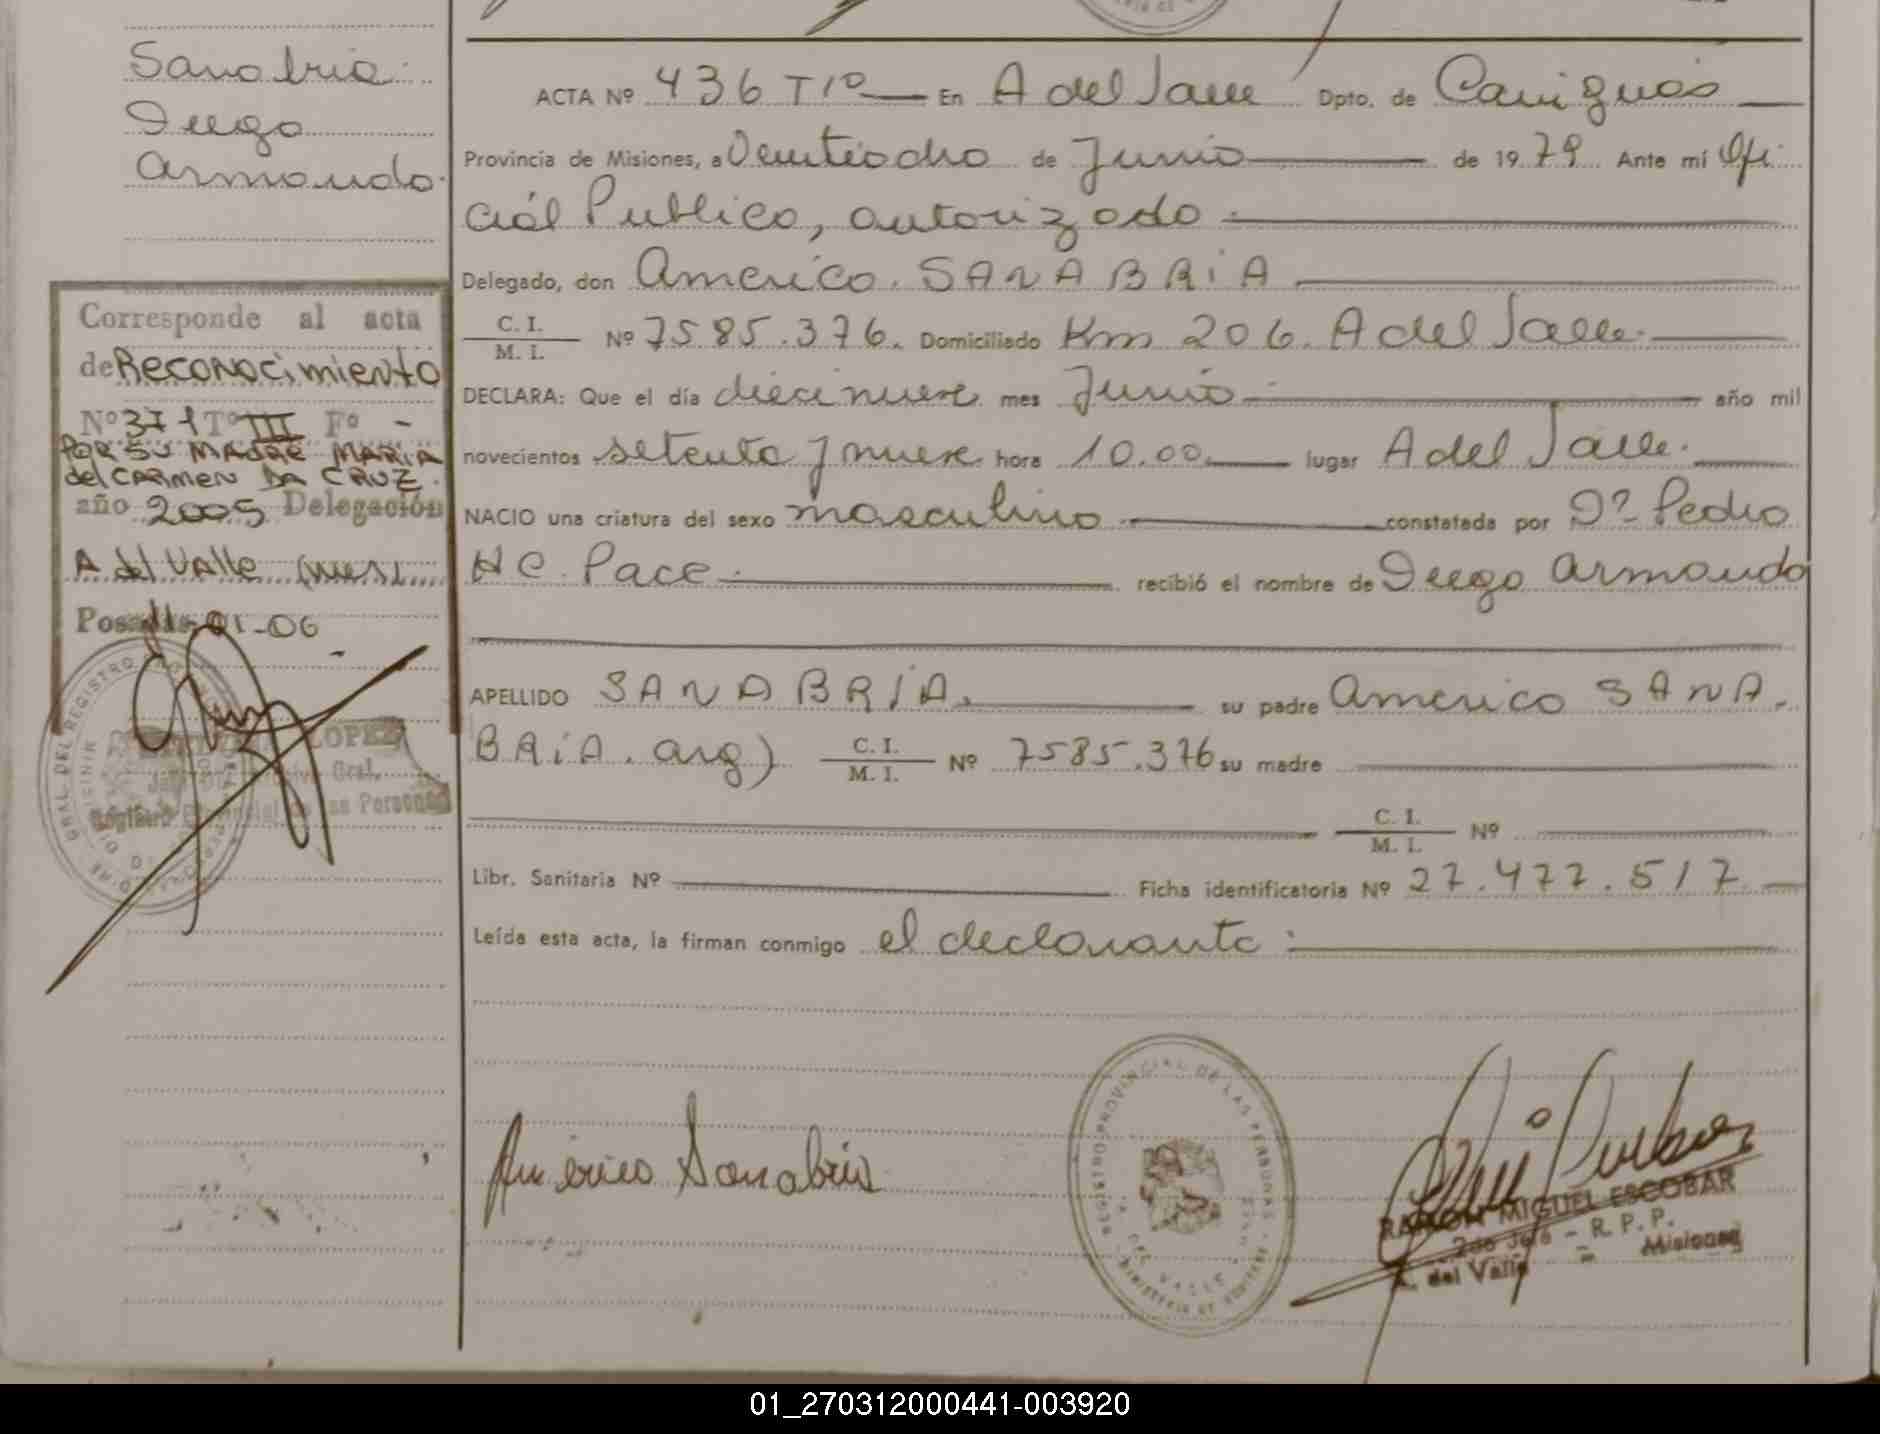 Sanabria
Diego
Armando
Corresponde al acta
de Reconocimiento
Nº 371 Tº III Fº -
POR SU MADRE MARIA
del CARMEN DA CRUZ.
año 2005 Delegación
A del Valle (Mnes)
Posadas 01-06
LOPEZ
ACTA Nº 436 Tº Iº En A del Valle Dpto. de Cainguás
Provincia de Misiones, a Veintiocho de Junio de 1979 Ante mí Ofi-
cial Publico, autorizado
Delegado, don Americo. SANABRIA
C. I.
M. I. Nº 7585.376. Domiciliado Km 206. A del Valle.
DECLARA: Que el día diecinueve mes Junio año mil
novecientos setenta y nueve hora 10.00 lugar A del Valle.
NACIO una criatura del sexo masculino constatada por Dº Pedro
HC. Pace recibió el nombre de Diego Armando
APELLIDO SANABRIA. su padre Americo SANA-
BRIA. arg) C. I.
M. I. Nº 7585.376 su madre
C. I.
M. I. Nº
Libr. Sanitaria Nº Ficha identificatoria Nº 27.477.517
Leída esta acta, la firman conmigo el declarante:
Américo Sanabria
REGISTRO PROVINCIAL DE LAS PERSONAS
A. DEL VALLE
RAMON MIGUEL ESCOBAR
2do Jefe - R. P. P.
A. del Valle - Misiones
01_270312000441-003920